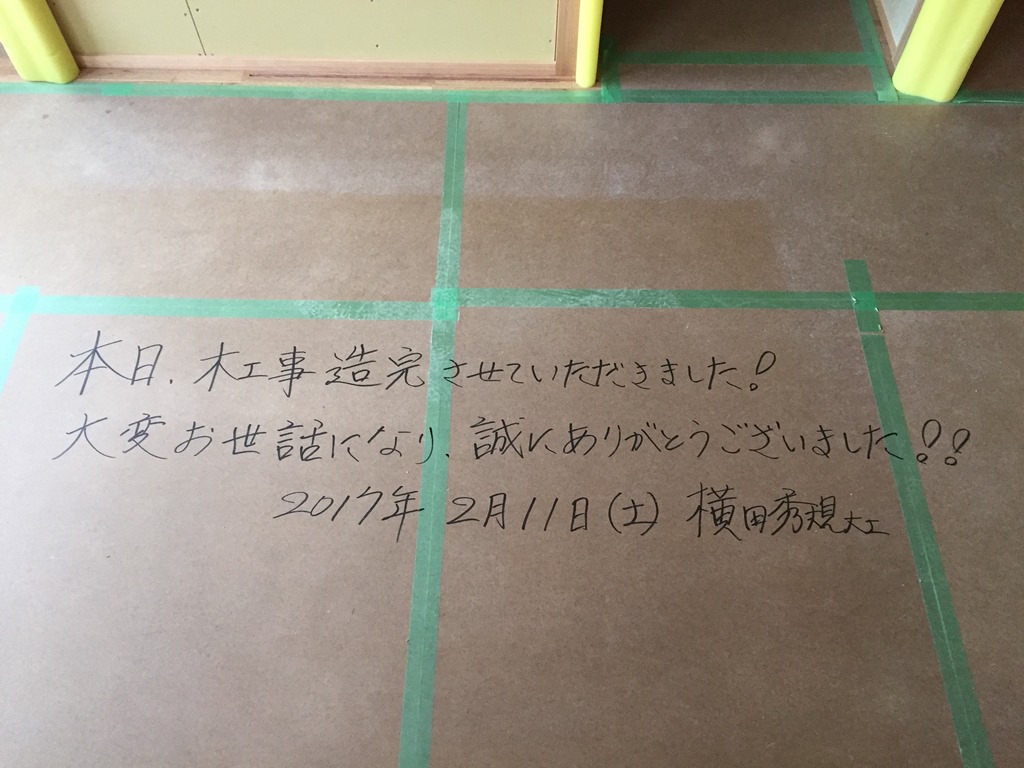 本日、木工事造完させていただきました!
大変お世話になり、誠にありがとうございました!!
2017年 2月11日(土) 横田秀規大工